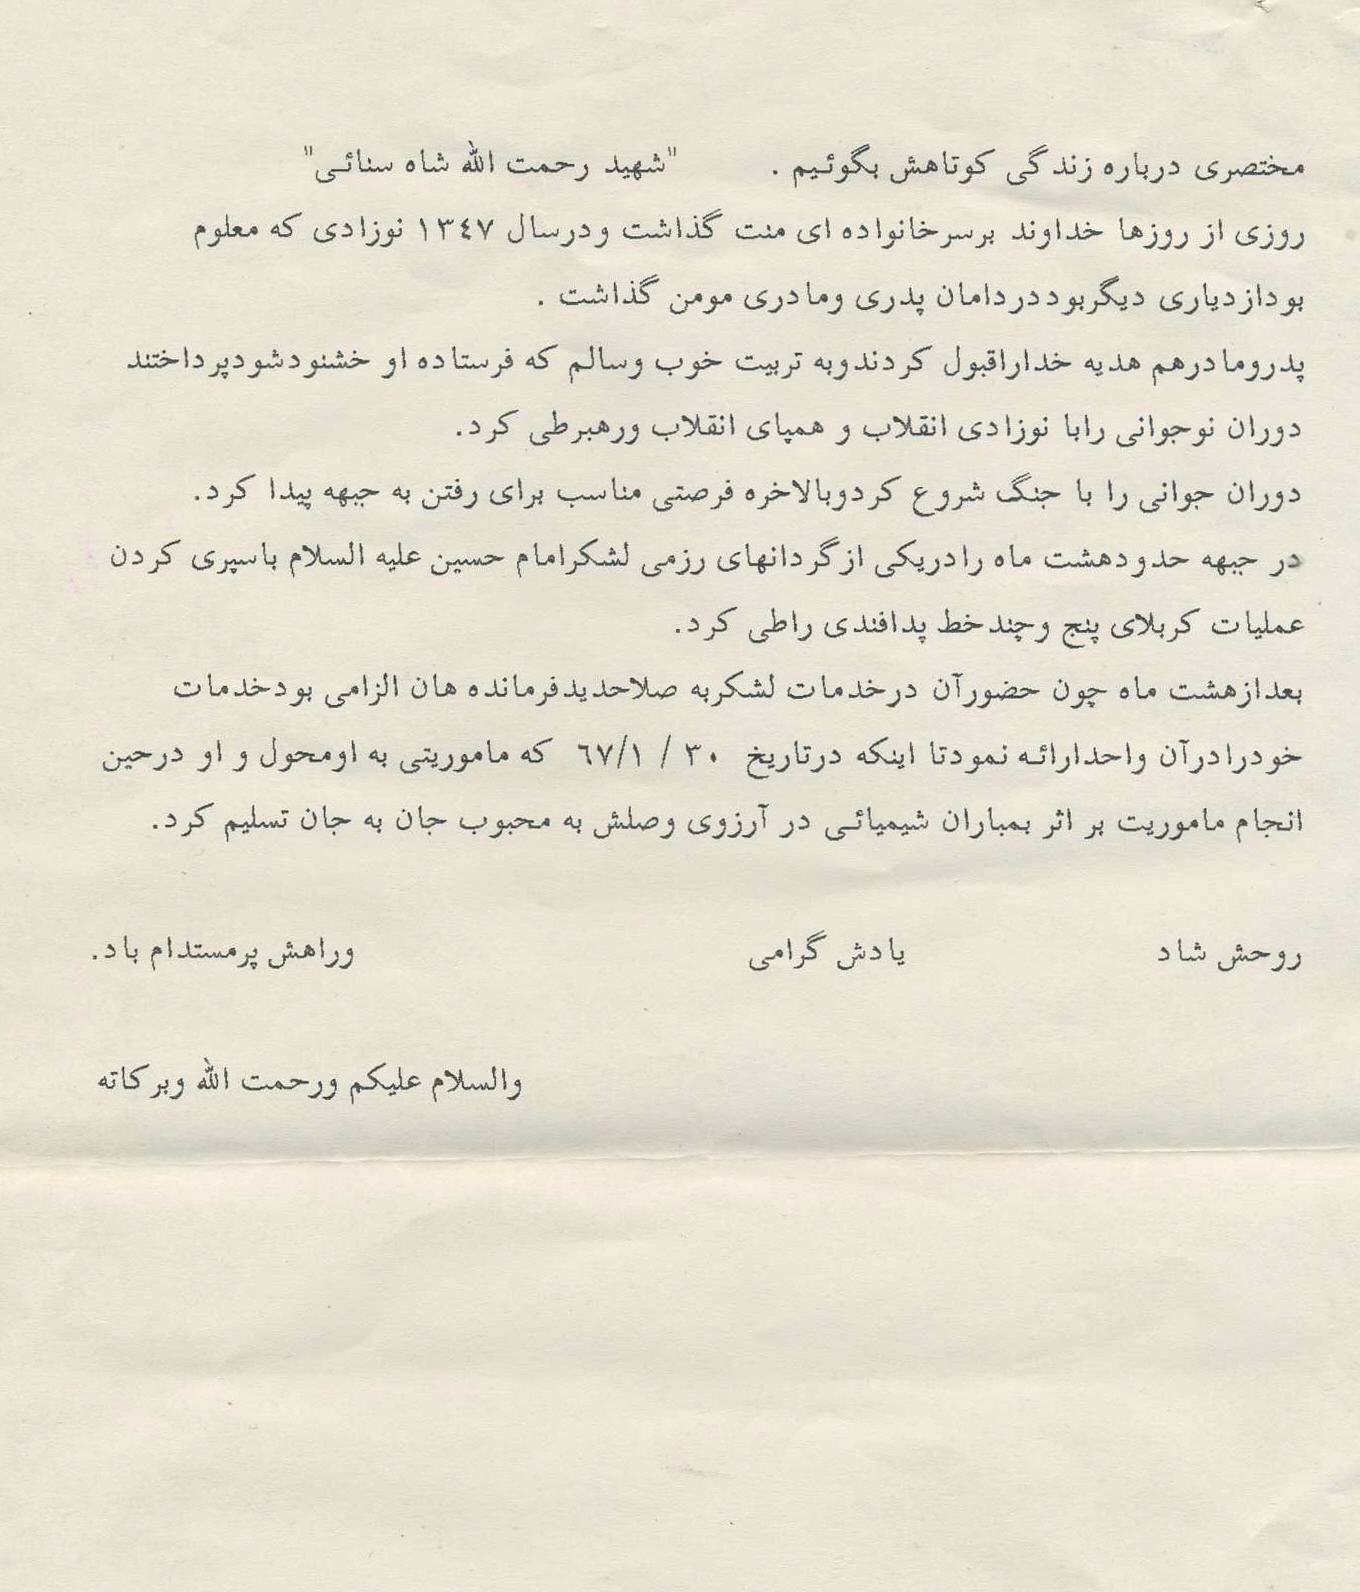 مختصری درباره زندگی کوتاهش بگوئیم . "شهید رحمت الله شاه سنائی"
روزی از روزها خداوند برسرخانواده ای منت گذاشت ودرسال ۱۳٤۷ نوزادی که معلوم
بودازدیاری دیگربوددردامان پدری ومادری مومن گذاشت .
پدرومادرهم هدیه خداراقبول کردندوبه تربیت خوب وسالم که فرستاده او خشنودشودپرداختند
دوران نوجوانی رابا نوزادی انقلاب و همپای انقلاب ورهبرطی کرد.
دوران جوانی را با جنگ شروع کردوبالاخره فرصتی مناسب برای رفتن به جبهه پیدا کرد.
در جبهه حدودهشت ماه رادریکی ازگردانهای رزمی لشکرامام حسین علیه السلام باسپری کردن
عملیات کربلای پنج وچندخط پدافندی راطی کرد.
بعدازهشت ماه چون حضورآن درخدمات لشکربه صلاحدیدفرمانده هان الزامی بودخدمات
خودرادرآن واحدارائه نمودتا اینکه درتاریخ ۳۰ / ٦۷/۱ که ماموریتی به اومحول و او درحین
انجام ماموریت بر اثر بمباران شیمیائی در آرزوی وصلش به محبوب جان به جان تسلیم کرد.
روحش شاد یادش گرامی وراهش پرمستدام باد.
والسلام علیکم ورحمت الله وبرکاته